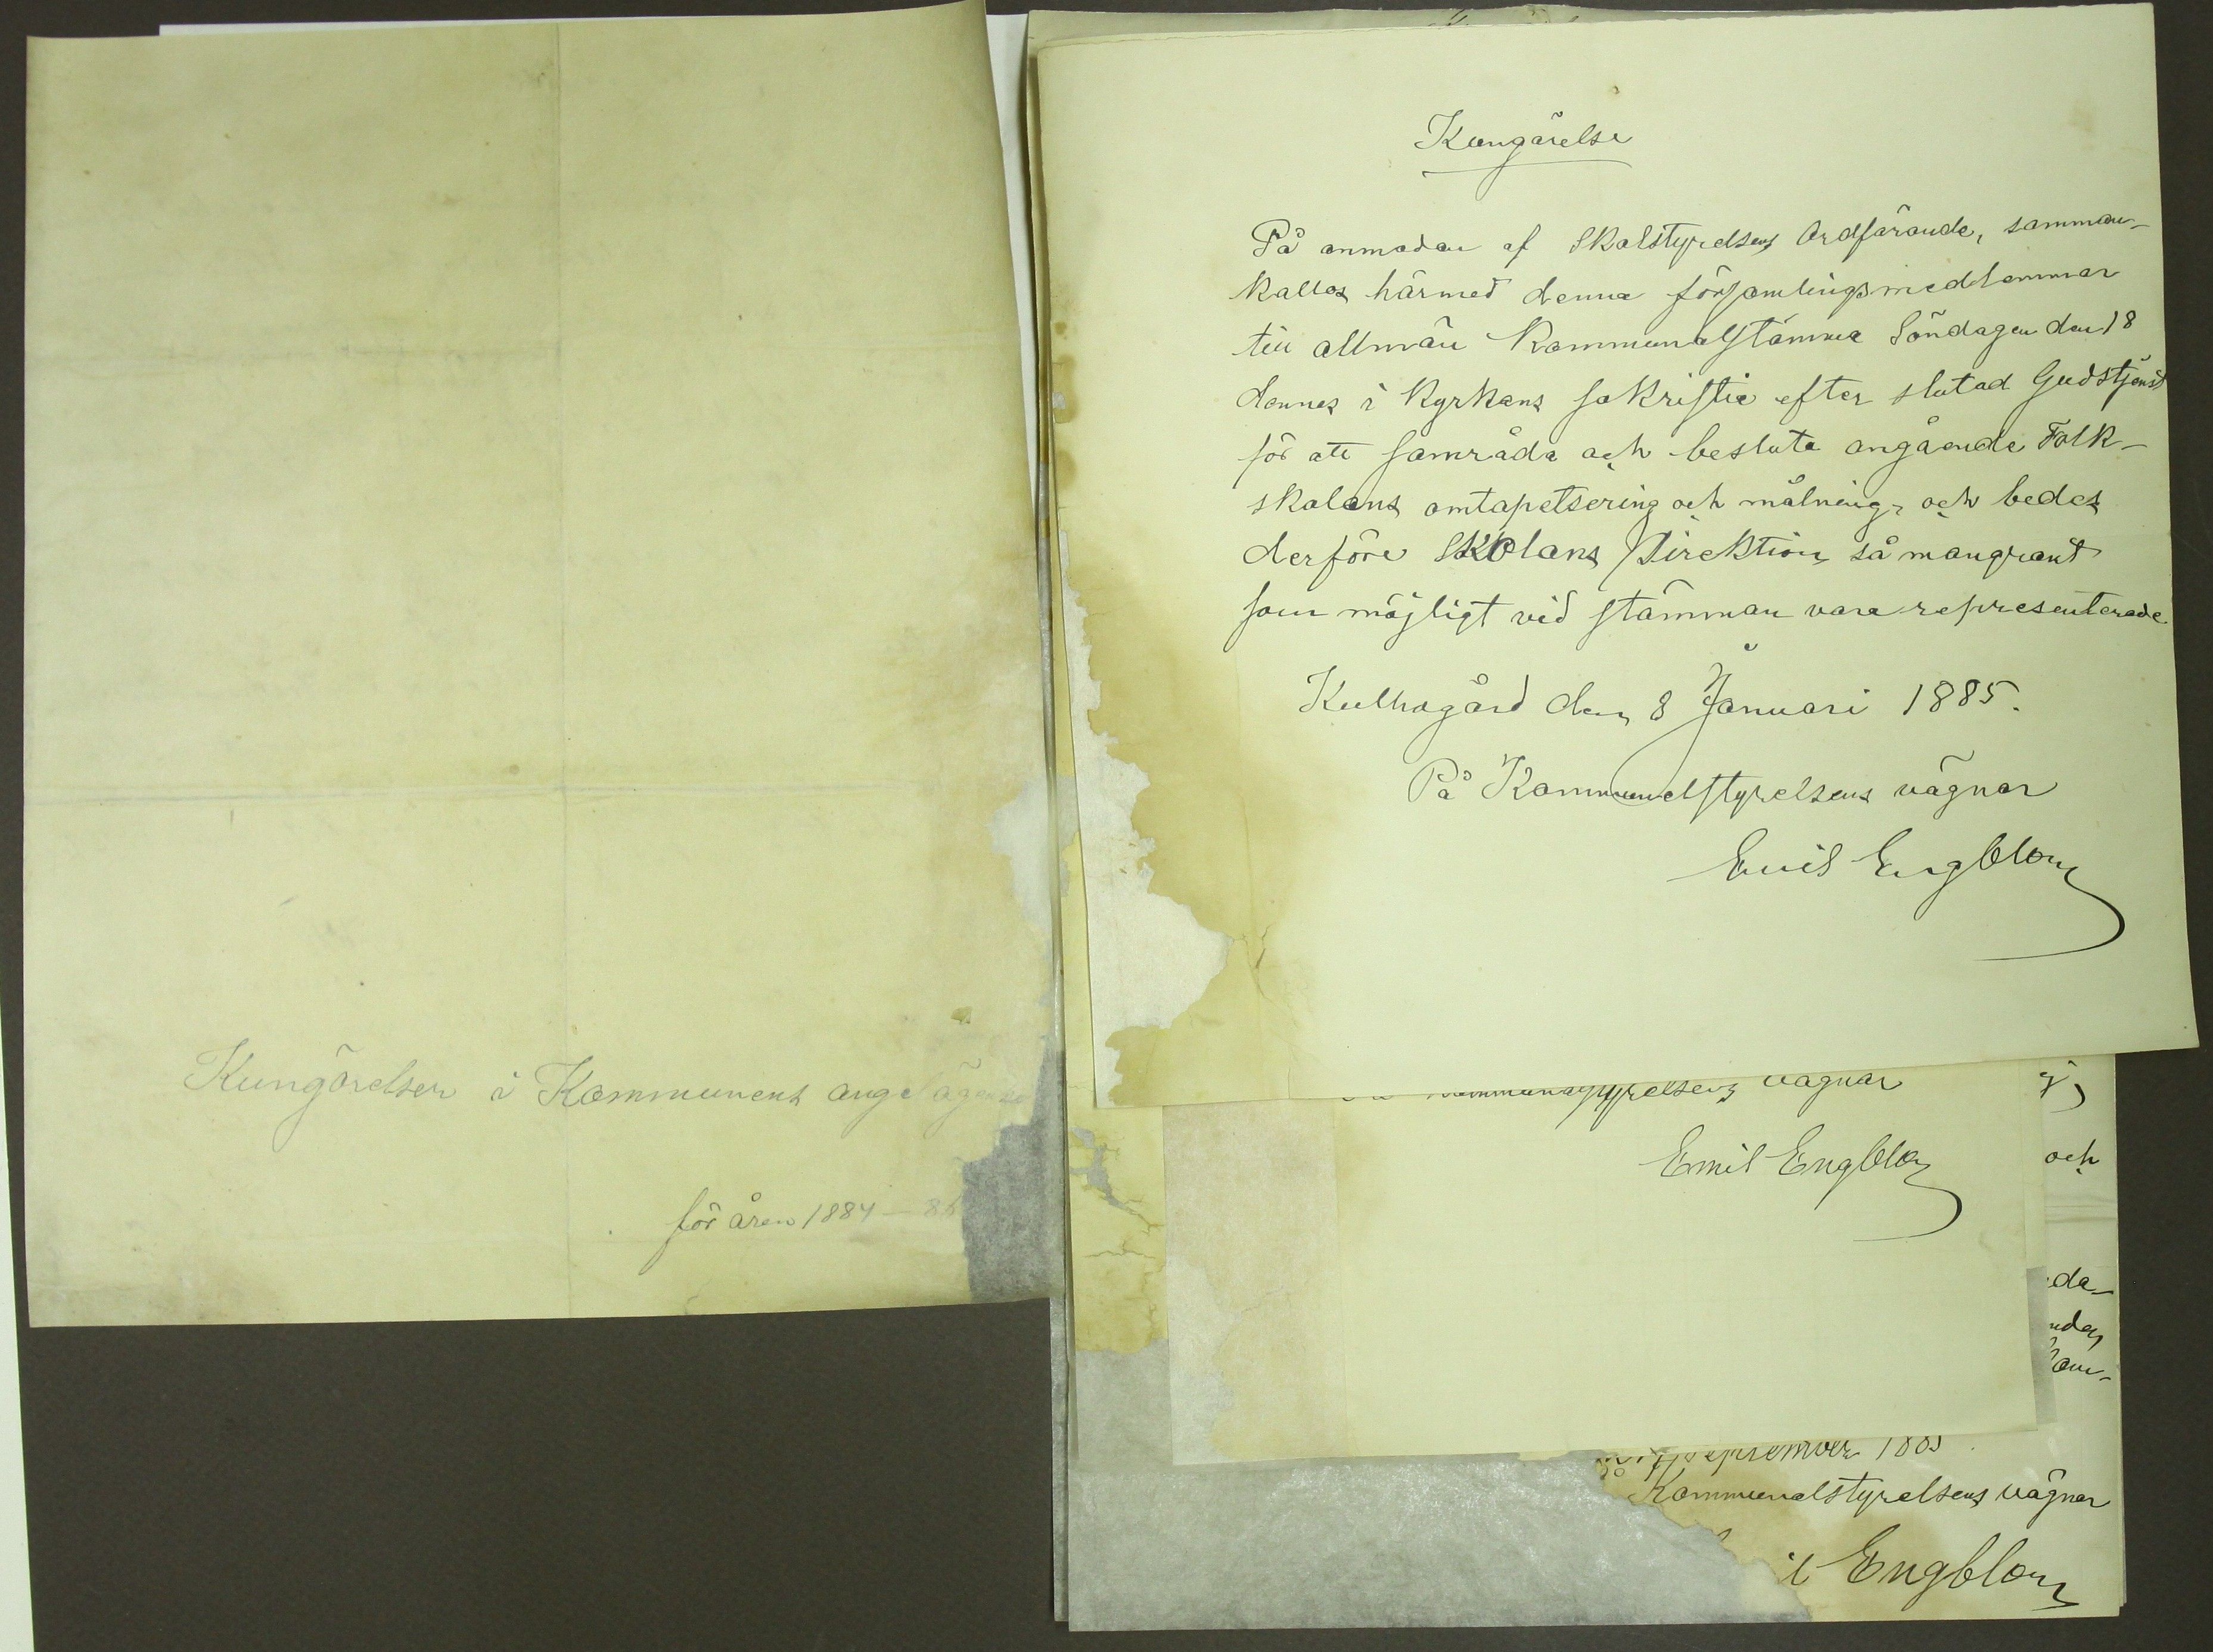 Kungörelser i Kommunens angelägen
för åren 1884—86
Kungörelse
På anmodan af Skolstyrelsens Ordförande, samman-
kallas härmed denna församlingsmedlemmar
till allmän Kommunalstämma Söndagen den 18
dennes i Kyrkans sakristia efter slutad Gudstjenst
för att samråda och besluta angående Folk-
skolans omtapetsering och målning, och bedes
derföre Skolans Direktion så mangrant
som möjligt vid stämman vara representerade
Kulhogård den 8 Januari 1885.
På Kommunalstyrelsens vägnar
Emil Engblom
Kommunalstyrelsens vägnar
Emil Engblom
och
September 1885
Kommunalstyrelsens vägnar
il Engblom